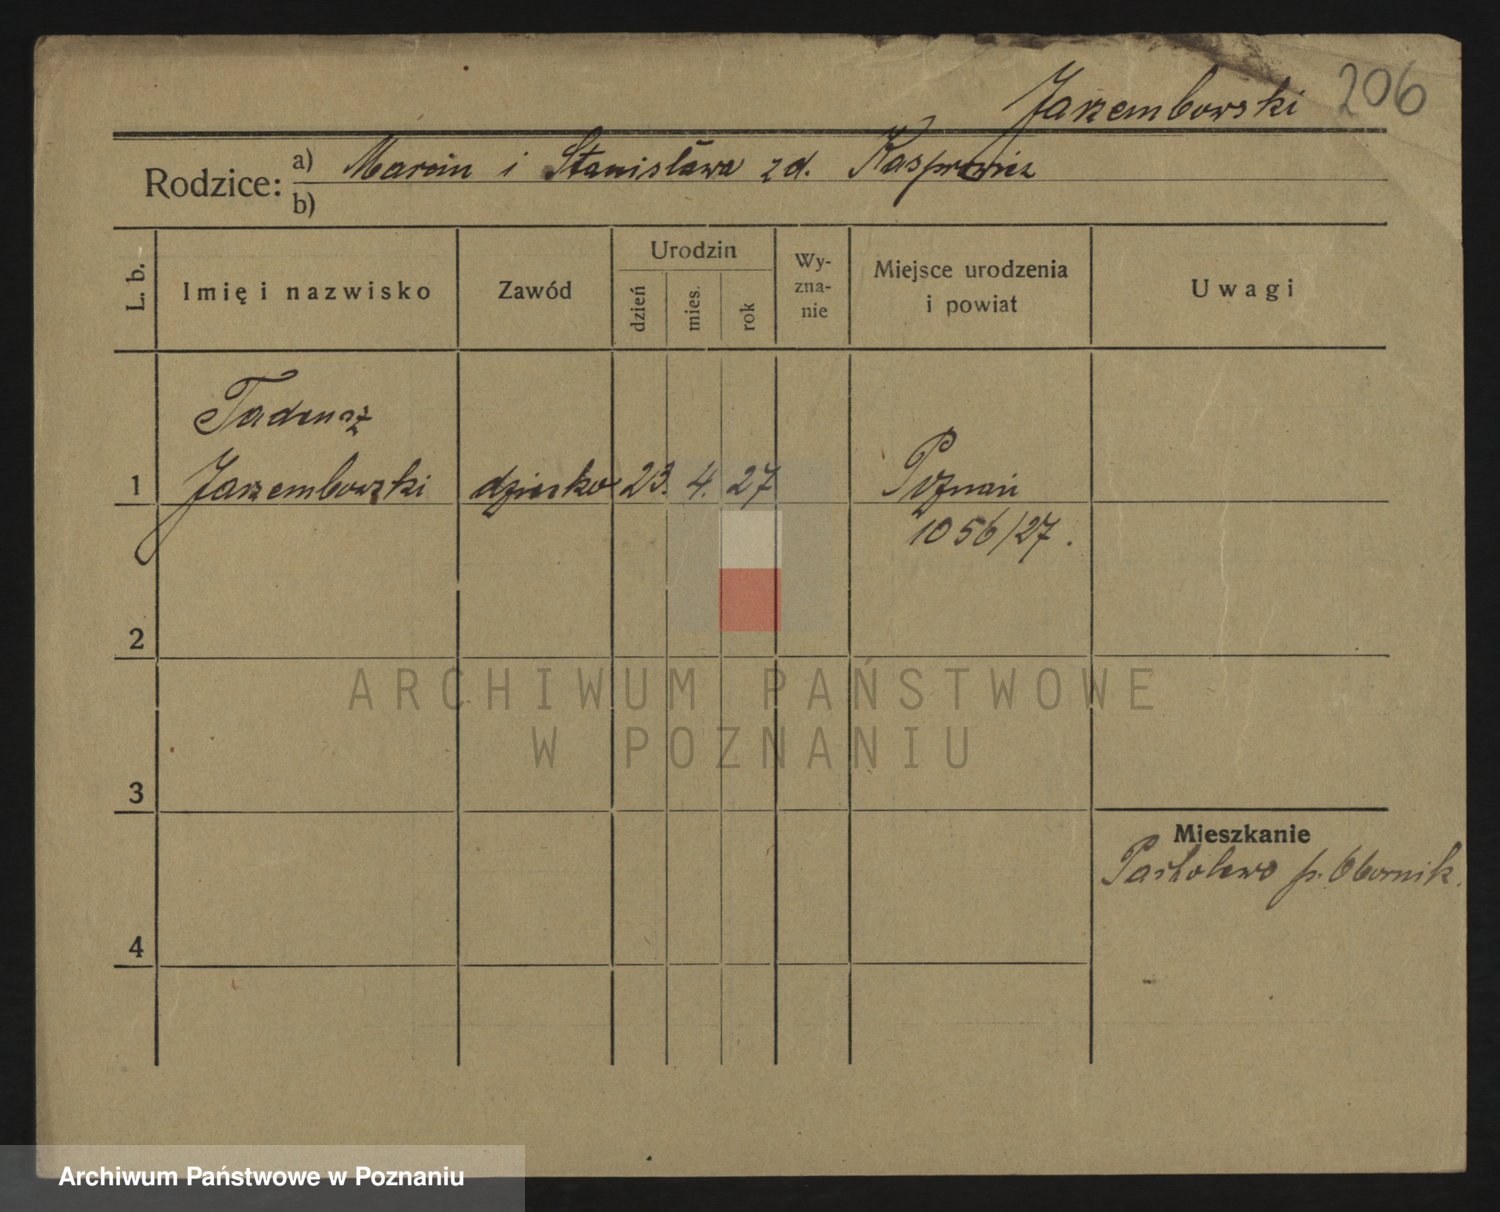 206
Jarzembowski
Rodzice:
a) Marcin i Stanisława zd. Kasprowicz
b)
L. b.
Imię i nazwisko
Zawód
Urodzin
dzień
mies.
rok
Wy-
zna-
nie
Miejsce urodzenia
i powiat
Uwagi
Tadeusz
1 Jarzembowski dziecko 23. 4. 27 Poznań
1056/27.
2
3
4
Mieszkanie
p. Obornik.
ARCHIWUM PAŃSTWOWE
W POZNANIU
Archiwum Państwowe w Poznaniu